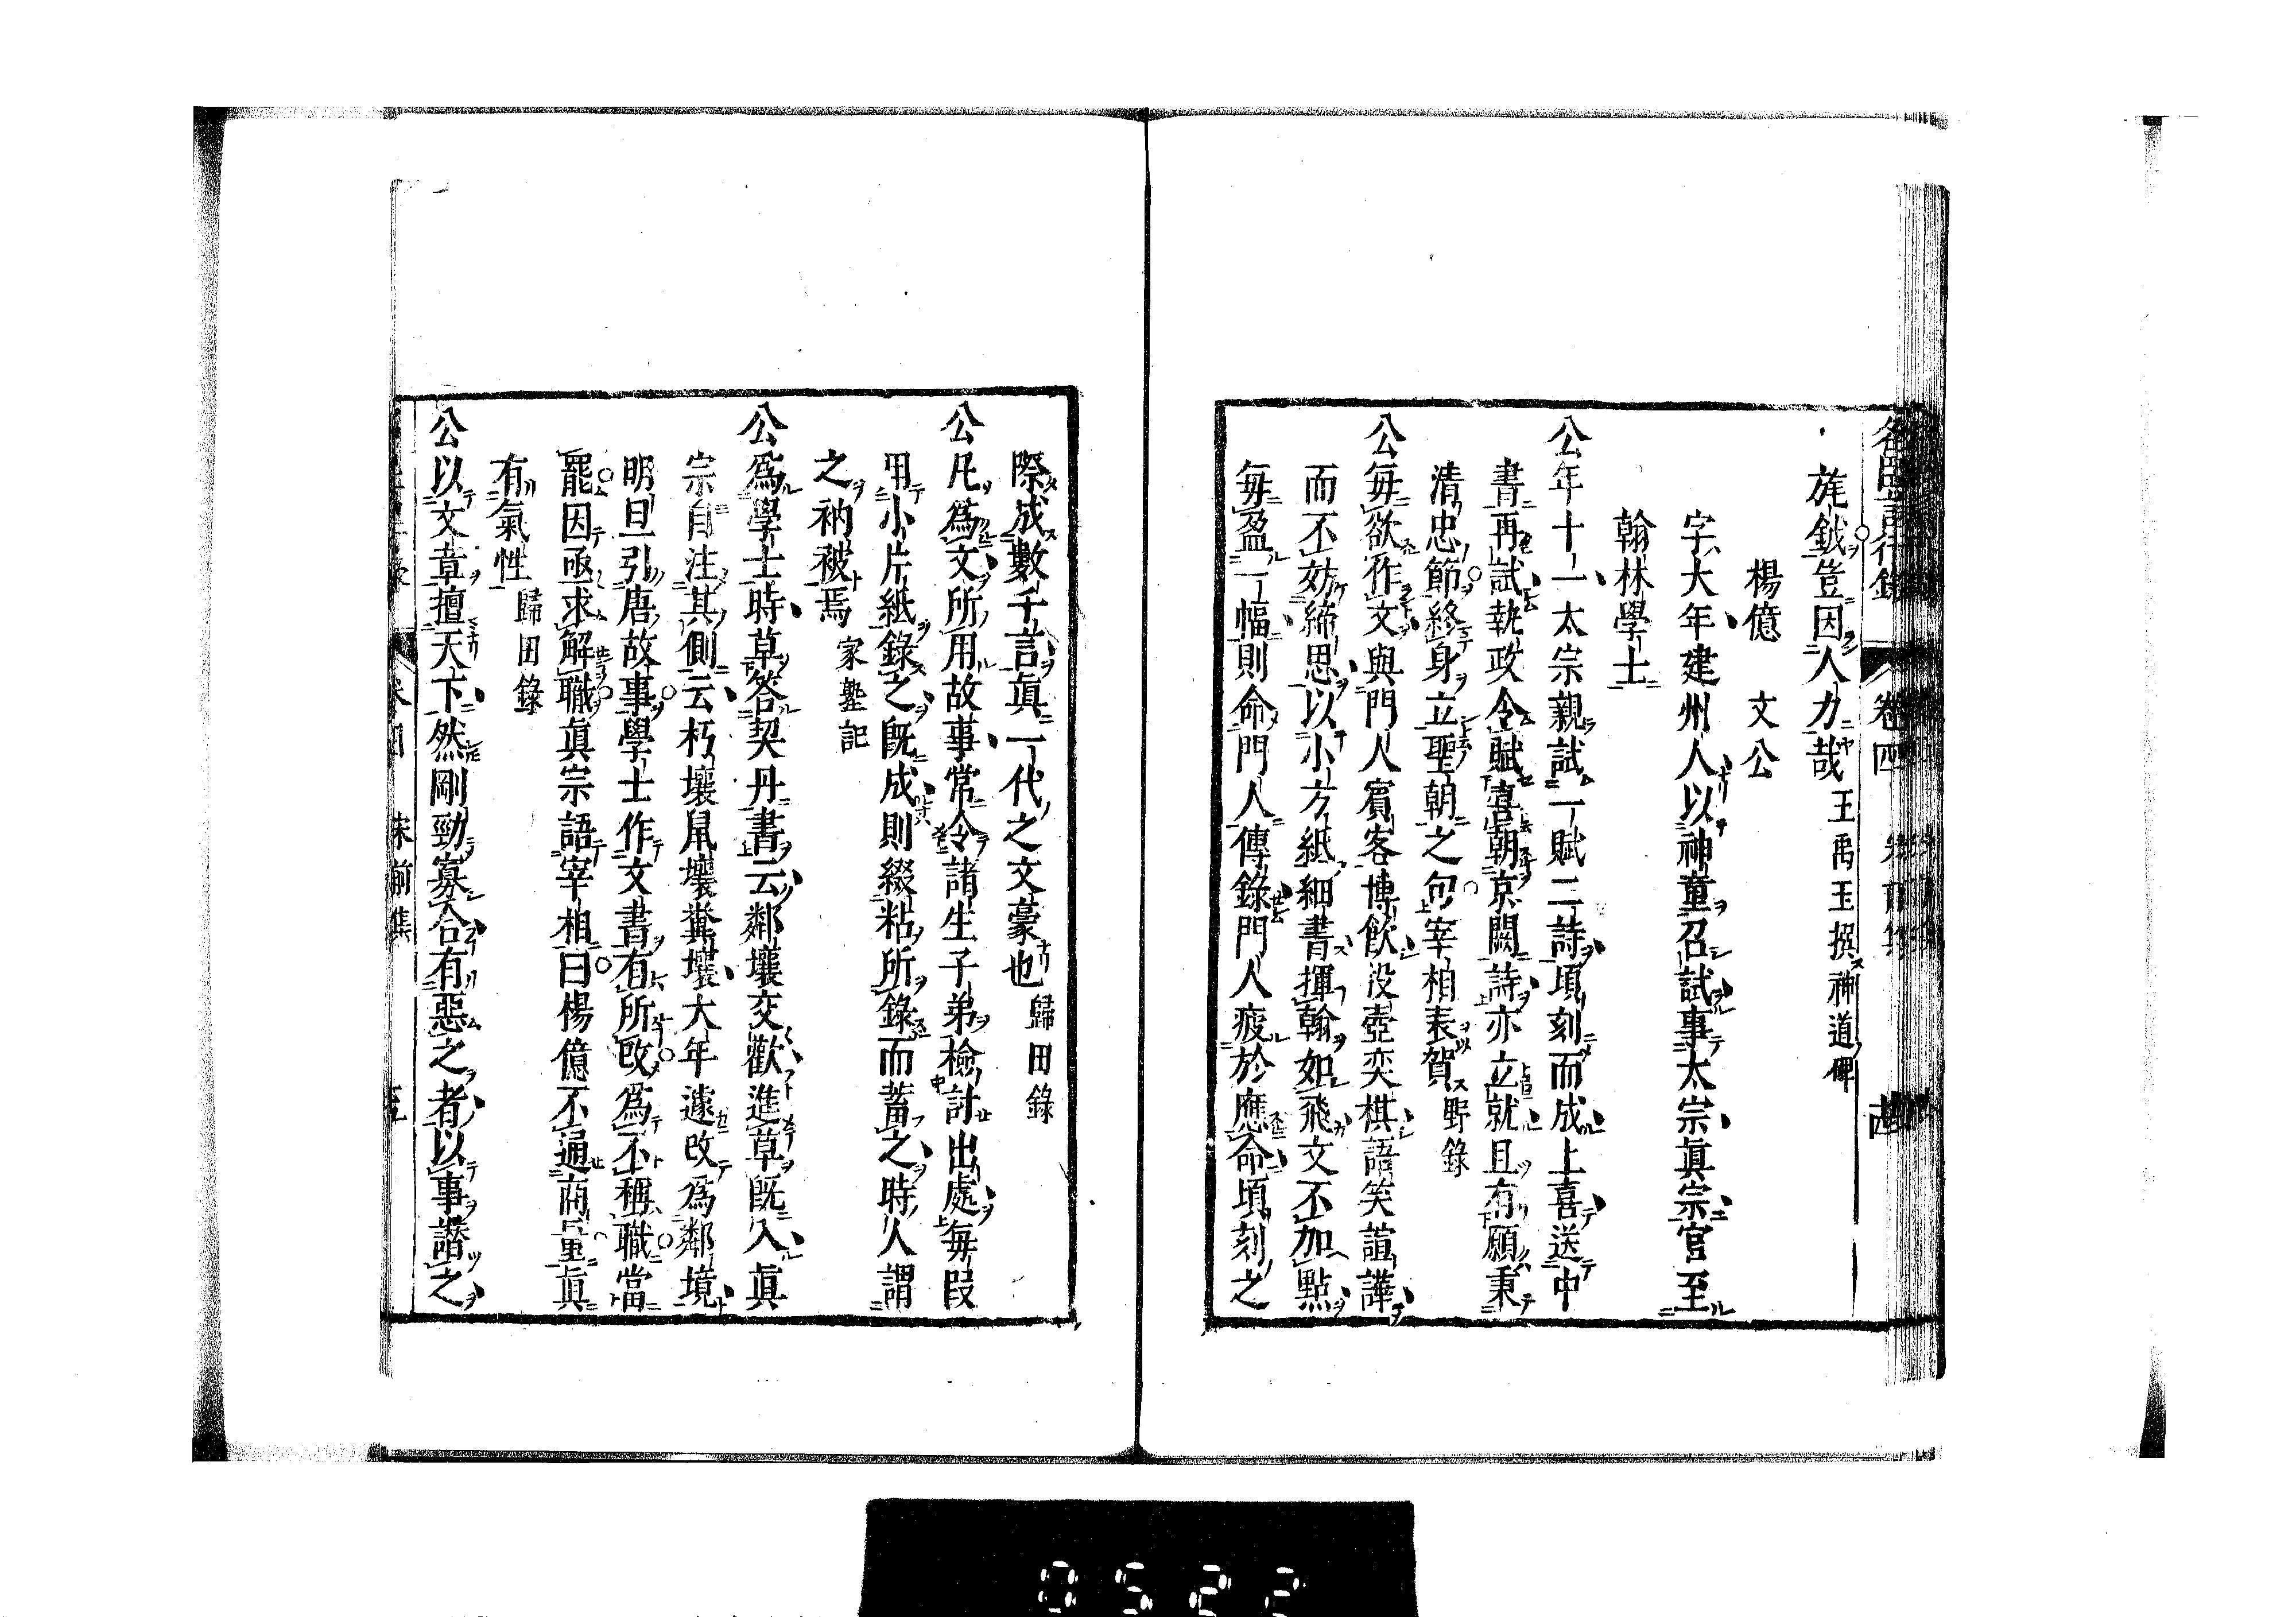 名臣言行錄　卷四
旄鉞豈因人力哉　王禹玉撰神道碑
楊億　文公
字大年建州人以神童召試事太宗眞宗官至
翰林學士
公年十一太宗親試一賦二詩頃刻而成上喜送中
書再試執政令賦喜朝京闕詩亦立就且有願秉
清忠節終身立聖朝之句宰相表賀　野錄
公每欲作文與門人賓客博飮投壺奕棋語笑諠譁
而不妨締思以小方紙細書揮翰如飛文不加點
每盈一幅則命門人傳錄門人疲於應命頃刻之
際成數千言眞一代之文豪也　歸田錄
公凡爲文所用故事常令諸生子弟檢討出處每段
用小片紙錄之旣成則綴粘所錄而蓄之時人謂
之衲被焉　家塾記
公爲學士時草答契丹書云鄰壤交歡進草旣入眞
宗自注其側云朽壤鼠壤糞壤大年遽改爲鄰境
明旦引唐故事學士作文書有所改爲不稱職當
罷因亟求解職眞宗語宰相曰楊億不通商量眞
有氣性　歸田錄
公以文章擅天下然剛勁寡合有惡之者以事譖之
0522